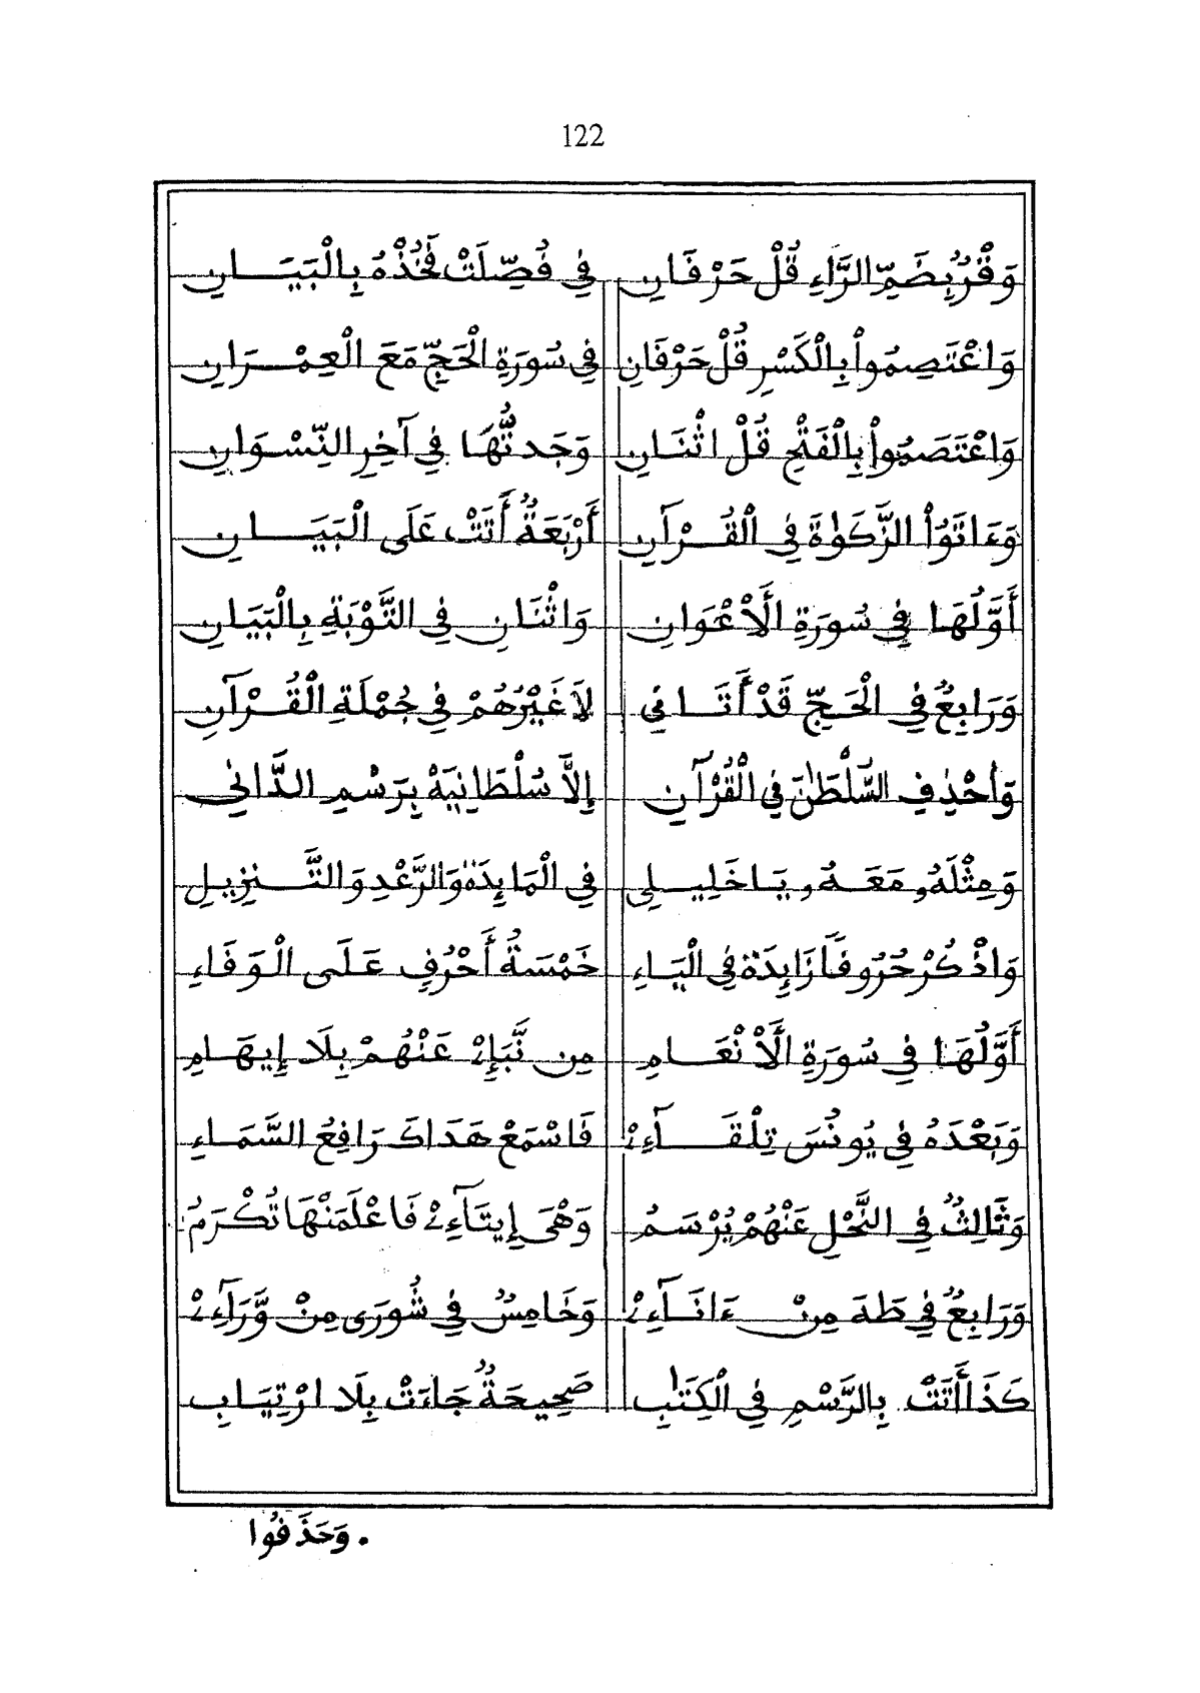 122
وَقْرُ بِضَمِّ الرَّاءِ قُلْ حَرْفَانِ فِي فُصِّلَتْ فَخُذْهُ بِالْبَيَـانِ
وَاعْتَصِمُواْ بِالْكَسْرِ قُلْ حَرْفَانِ فِي سُورَةِ الْحَجِّ مَعَ الْعِمْـرَانِ
وَاعْتَصَمُواْ بِالْفَتْحِ قُلْ اثْنَـانِ وَجَدتُّهَا فِي آخِرِ النِّسْوَانِ
وَءَاتَوُاْ الزَّكَوٰةَ فِي الْقُـرْآنِ أَرْبَعَةٌ أَتَتْ عَلَى الْبَيَـانِ
أَوَّلُهَا فِي سُورَةِ الَأعْوَانِ وَاثْنَانِ فِي التَّوْبَةِ بِالْبَيَانِ
وَرَابِعٌ فِي الْحَجِّ قَدْ أَتَـانِي لاَ غَيْرَهُمْ فِي جُمْلَةِ الْقُـرْآنِ
وَاحْذِفِ السُّلْطَٰنَ فِي الْقُرْآنِ إِلاَّ سُلْطَانِيَهْ بِرَسْمِ الدَّانِي
وَمِثْلَهُ مَعَـهُ يَا خَلِيـلِي فِي الْمَايِدَةِ وَالرَّعْدِ وَالتَّـنْزِيلِ
وَاذْكُرْ حُرُوفاً زَايِدَةً فِي الْيَاءِ خَمْسَةُ أَحْرُفٍ عَلَى الْوَفَاءِ
أَوَّلُهَا فِي سُورَةِ الَأنْعَـامِ مِن نَّبَإِىْ عَنْهُمْ بِلَا إِيهَـامِ
وَبَعْدَهُ فِي يُونُسَ تِلْقَـآءِىْ فَاسْمَعْ هَدَاكَ رَافِعُ السَّمَاءِ
وَثَالِثٌ فِي النَّحْلِ عَنْهُمْ يُرْسَمُ وَهْيَ إِيتَآءِىْ فَاعْلَمَنْهَا تُكْرَمُ
وَرَابِعٌ فِي طَهَ مِنْ ءَانَـآءِىْ وَخَامِسٌ فِي شُورَى مِنْ وَّرَآءِىْ
كَذَا أَتَتْ بِالرَّسْمِ فِي الْكِتَٰبِ صَحِيحَةٌ جَاءَتْ بِلَا ارْتِيَابِ
. وَحَذَفُوا